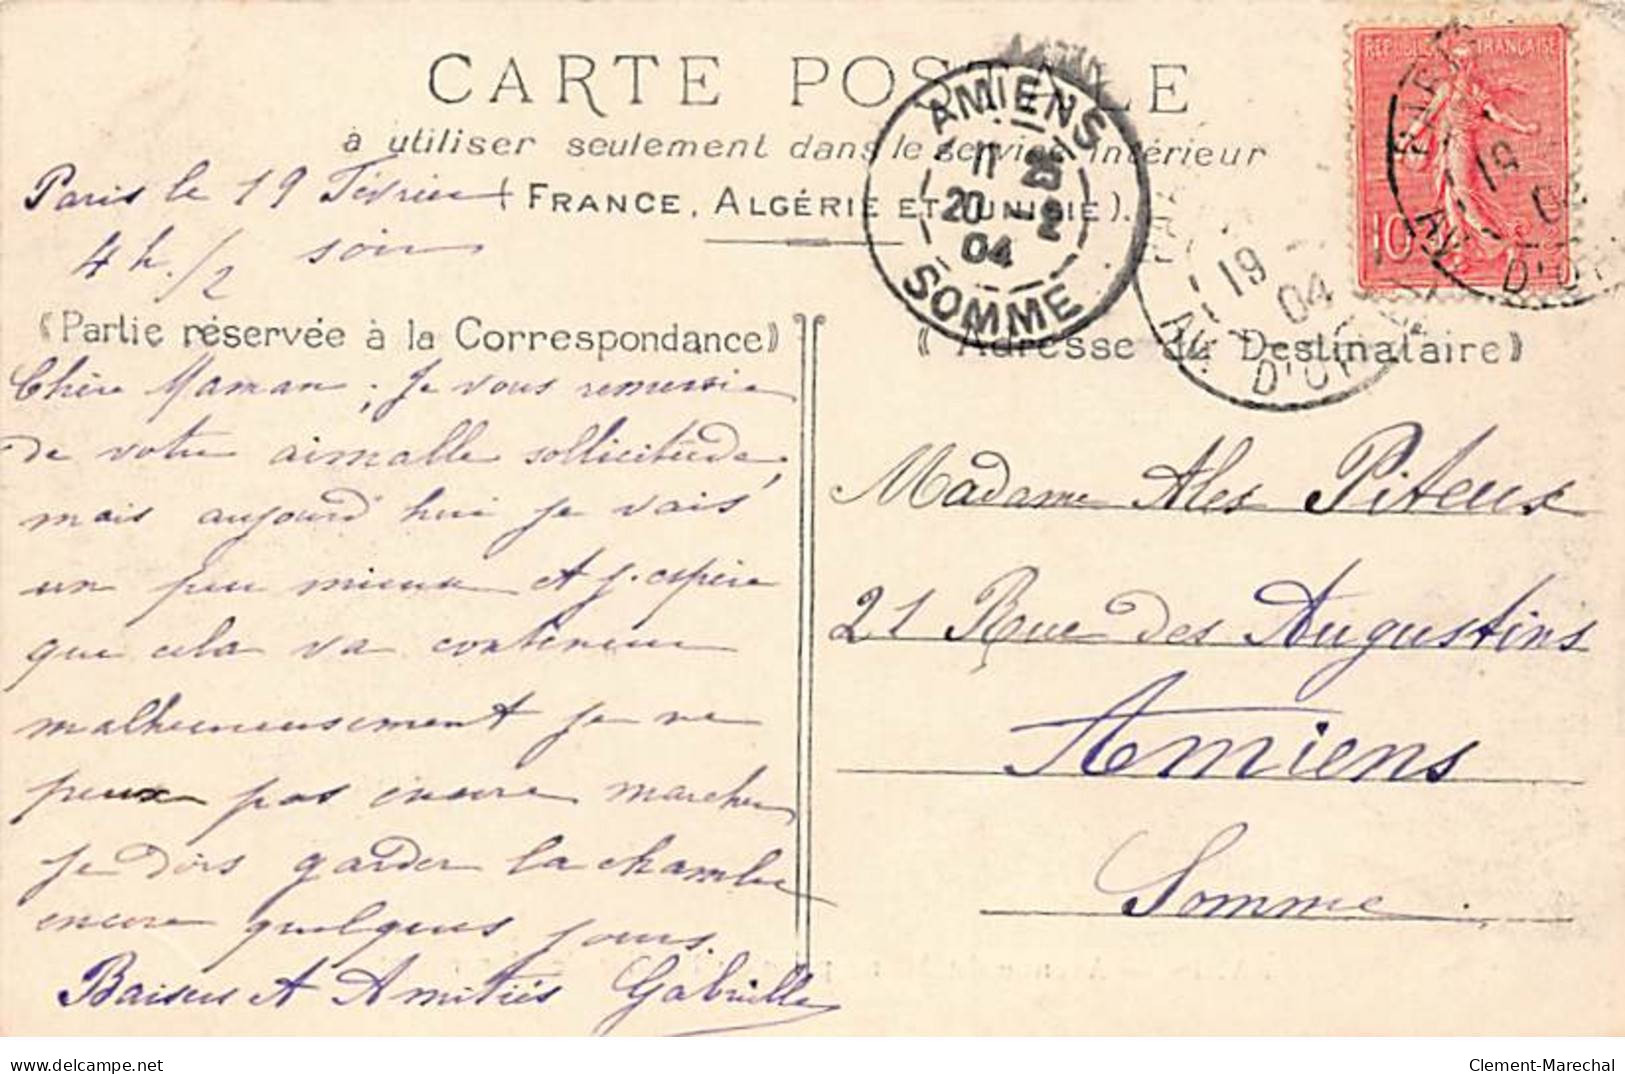 CARTE POSTALE
à utiliser seulement dans le service intérieur
(FRANCE, ALGÉRIE ET TUNISIE).
Paris le 19 Février
4 h. 1/2 soir
RÉPUBLIQUE FRANÇAISE
10
AMIENS
11 25
20 -2
04
SOMME
PARIS
19
04
AV. D'O
19
04
AV. D'O
《Partie réservée à la Correspondance》
《Adresse du Destinataire》
Chère Maman ; Je vous remersie
de votre aimalle sollicitude,
mais aujourd'hui je vais
un peu mieux et j'espère
que cela va continuer
malheureusement je ne
peux pas encore marcher
je dois garder la chambre
encore quelques jours.
Baisers et Amitiés Gabrielle
Madame Alex Piteux
21 Rue des Augustins
Amiens
Somme.
delcampe.net
Clement-Marechal